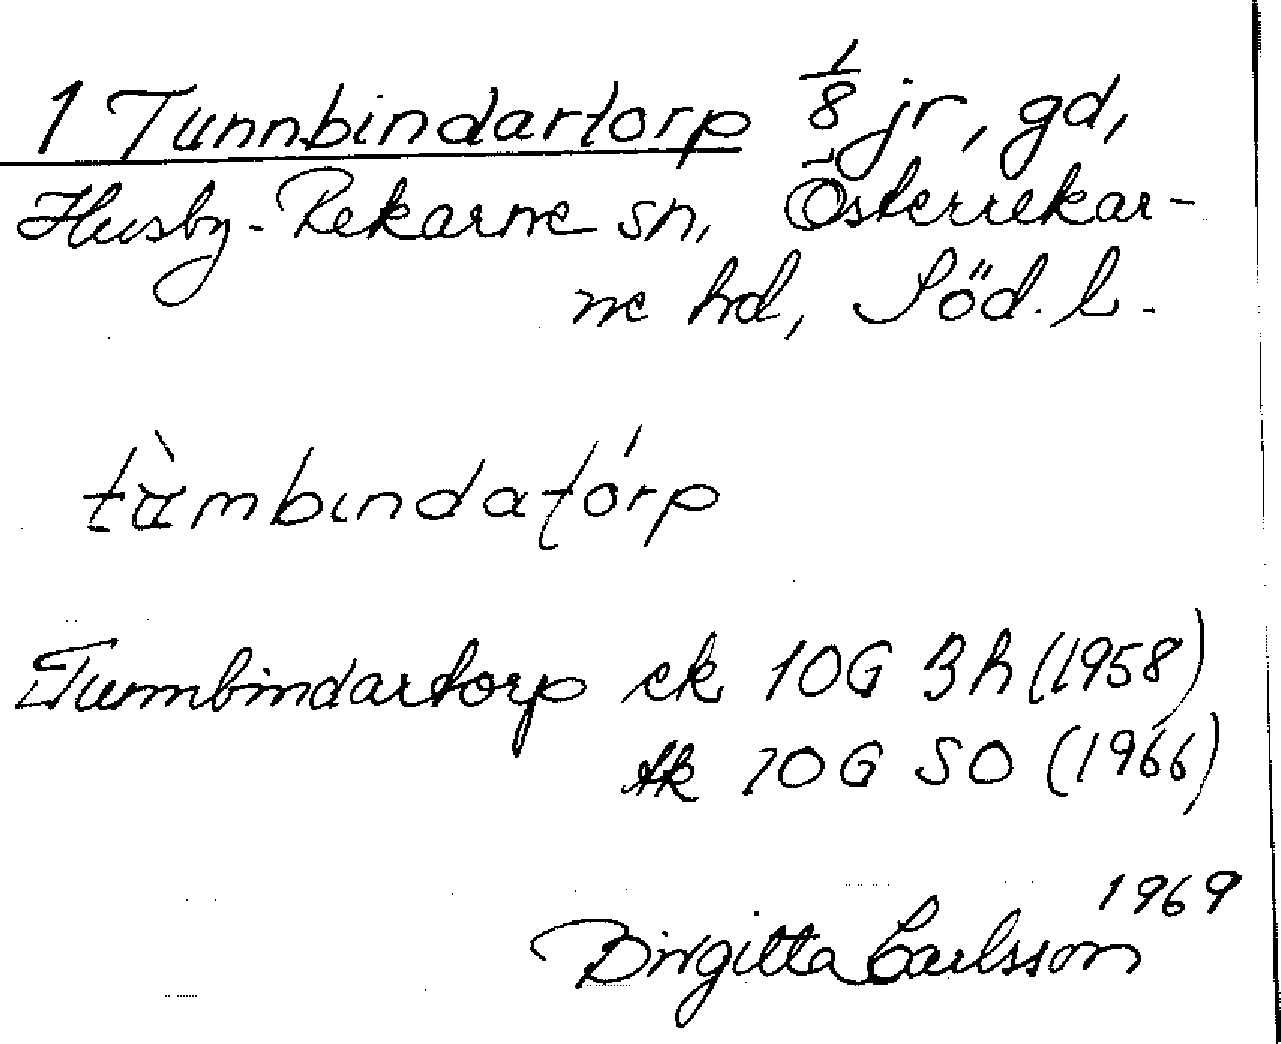 1 Tunnbindartorp 1/8 jr, gd,
Husby-Rekarne sn, Österrekar-
ne hd, Söd. l.
tàmbındatórp
Tunnbindartorp ek 10G 3h (1958)
tk 10G SO (1966)
1969
Birgitta Carlsson